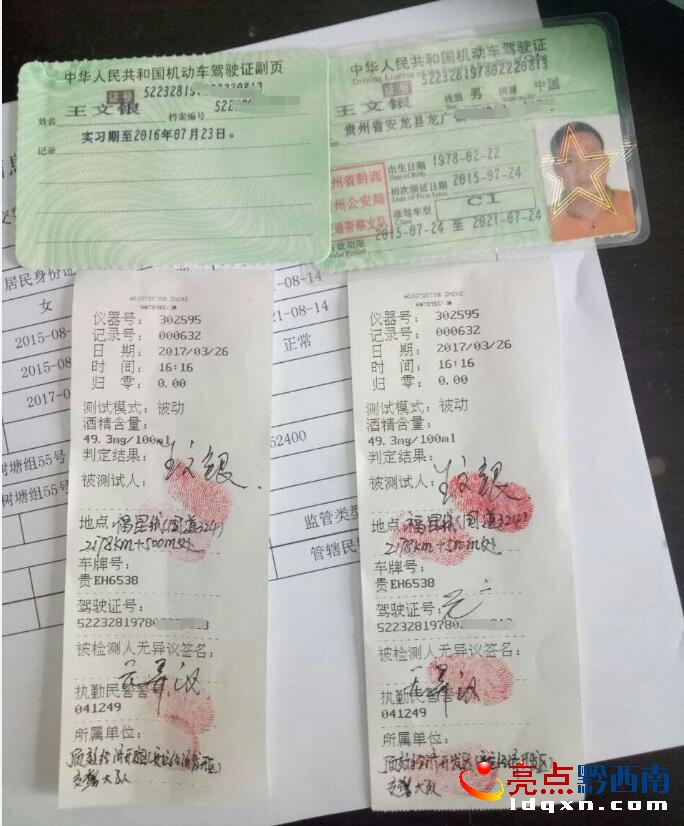 中华人民共和国机动车驾驶证副页
证号
姓名 王文银 档案编号 522
记录 实习期至2016年07月23日。
中华人民共和国机动车驾驶证
Driving License
证号
王文银 性别 男 国籍 中国
贵州省安龙县龙广
出生日期 1978-02-22
Date of Birth
初次领证日期 2015-07-24
Date of First Issue
准驾车型 C1
Class
2015-07-24 至 2021-07-24
州省黔西
州公安局
通警察支队
居民身份证
-08-14
女
21-08-14
2015-08-
正常
2015-0
2017-0
52400
树塘组55号
树塘组55号
监管类型
管辖民
仪器号: 302595
记录号: 000632
日 期: 2017/03/26
时 间: 16:16
归 零: 0.00
测试模式: 被动
酒精含量:
49.3mg/100ml
判定结果:
被测试人: 王文银
地点: 福昆线(国道324)
2178km+500m处
车牌号:
贵EH6538
驾驶证号:
52232819780
被检测人无异议签名:
无异议
执勤民警
041249
所属单位:
交警大队
仪器号: 302595
记录号: 000632
日 期: 2017/03/26
时 间: 16:16
归 零: 0.00
测试模式: 被动
酒精含量:
49.3mg/100ml
判定结果:
被测试人: 王文银
地点: 福昆线(国道324)
2178km+500m处
车牌号:
贵EH6538
驾驶证号:
52232819780
被检测人无异议签名:
无异议
执勤民警
041249
所属单位:
顶效经济开发区
交警大队
亮点黔西南
ldqxn.com